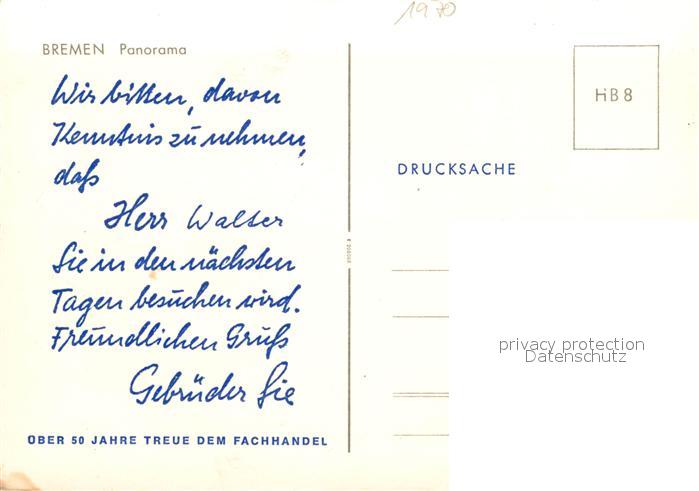 1970
BREMEN Panorama
HB 8
Wir bitten, davon
Kenntnis zu nehmen,
daß
DRUCKSACHE
Herr Walter
Sie in den nächsten
Tagen besuchen wird.
Freundlichen Gruß
privacy protection
Datenschutz
Gebrüder Sie
ÜBER 50 JAHRE TREUE DEM FACHHANDEL